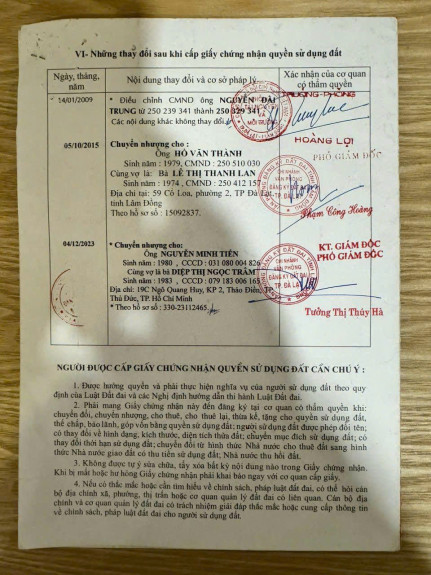 VI- Những thay đổi sau khi cấp giấy chứng nhận quyền sử dụng đất
Ngày, tháng, năm
Nội dung thay đổi và cơ sở pháp lý
Xác nhận của cơ quan có thẩm quyền
* 14/01/2009
* Điều chỉnh CMND ông NGUYỄN ĐÀI
TRUNG từ 250 239 341 thành 250 329 341
Các nội dung khác không thay đổi.
HOÀNG LỢI
05/10/2015
Chuyển nhượng cho:
Ông HỒ VĂN THÀNH
Sinh năm : 1979, CMND : 250 510 030
Cùng vợ là: Bà LÊ THỊ THANH LAN
Sinh năm : 1974 , CMND : 250 412 157
Địa chỉ tại: 59 Cổ Loa, phường 2, TP Đà Lạt,
tỉnh Lâm Đồng
Theo hồ sơ số : 15092837.
PHÓ GIÁM ĐỐC
Phạm Công Hoàng
04/12/2023
* Chuyển nhượng cho:
Ông NGUYỄN MINH TIẾN
Sinh năm : 1980 , CCCD : 031 080 004 826
Cùng vợ là bà DIỆP THỊ NGỌC TRÂM
Sinh năm : 1983 , CCCD : 079 183 006 165
Địa chỉ: 19C Ngô Quang Huy, KP 2, Thảo Điền, TP.
Thủ Đức, TP. Hồ Chí Minh
* Theo hồ sơ: 330-23112465.
KT. GIÁM ĐỐC
PHÓ GIÁM ĐỐC
CHI NHÁNH
VĂN PHÒNG
ĐĂNG KÝ ĐẤT ĐAI
TP. ĐÀ LẠT
Tưởng Thị Thúy Hà
NGƯỜI ĐƯỢC CẤP GIẤY CHỨNG NHẬN QUYỀN SỬ DỤNG ĐẤT CẦN CHÚ Ý :
1. Được hưởng quyền và phải thực hiện nghĩa vụ của người sử dụng đất theo quy
định của Luật Đất đai và các Nghị định hướng dẫn thi hành Luật Đất đai.
2. Phải mang Giấy chứng nhận này đến đăng ký tại cơ quan có thẩm quyền khi:
chuyển đổi, chuyển nhượng, cho thuê, cho thuê lại, thừa kế, tặng cho quyền sử dụng đất,
thế chấp, bảo lãnh, góp vốn bằng quyền sử dụng đất; người sử dụng đất được phép đổi tên;
có thay đổi về hình dạng, kích thước, diện tích thửa đất; chuyển mục đích sử dụng đất; có
thay đổi thời hạn sử dụng đất; chuyển đổi từ hình thức Nhà nước cho thuê đất sang hình
thức Nhà nước giao đất có thu tiền sử dụng đất; Nhà nước thu hồi đất.
3. Không được tự ý sửa chữa, tẩy xóa bất kỳ nội dung nào trong Giấy chứng nhận.
Khi bị mất hoặc hư hỏng Giấy chứng nhận phải khai báo ngay với cơ quan cấp giấy.
4. Nếu có thắc mắc hoặc cần tìm hiểu về chính sách, pháp luật đất đai, có thể hỏi cán
bộ địa chính xã, phường, thị trấn hoặc cơ quan quản lý đất đai có liên quan. Cán bộ địa
chính và cơ quan quản lý đất đai có trách nhiệm giải đáp thắc mắc hoặc cung cấp thông tin
về chính sách, pháp luật đất đai cho người sử dụng đất.